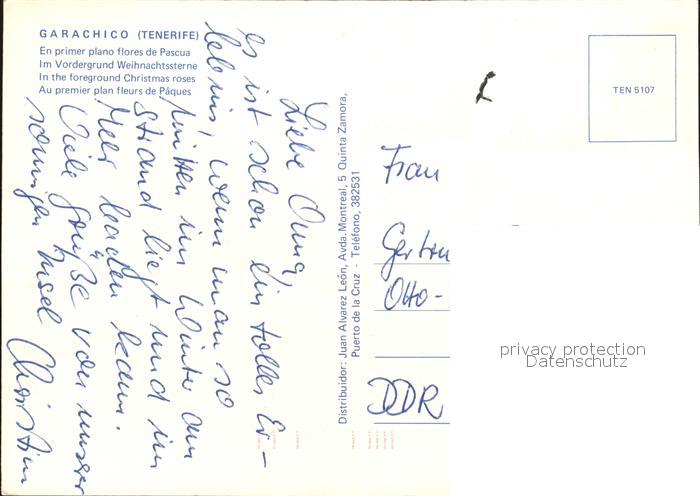 GARACHICO (TENERIFE)
En primer plano flores de Pascua
Im Vordergrund Weihnachtssterne
In the foreground Christmas roses
Au premier plan fleurs de Pâques
Liebe Oma,
es ist schon ein tolles Er-
lebnis, wenn man so
mitten im Winter am
Strand liegt und im
Meer baden kann.
Viele Grüße von unserer
sonnigen Insel Christin
Distribuidor: Juan Alvarez León, Avda. Montreal, 5 Quinta Zamora,
Puerto de la Cruz - Teléfono, 382531
TEN 5107
Frau
Otto-
DDR
privacy protection
Datenschutz